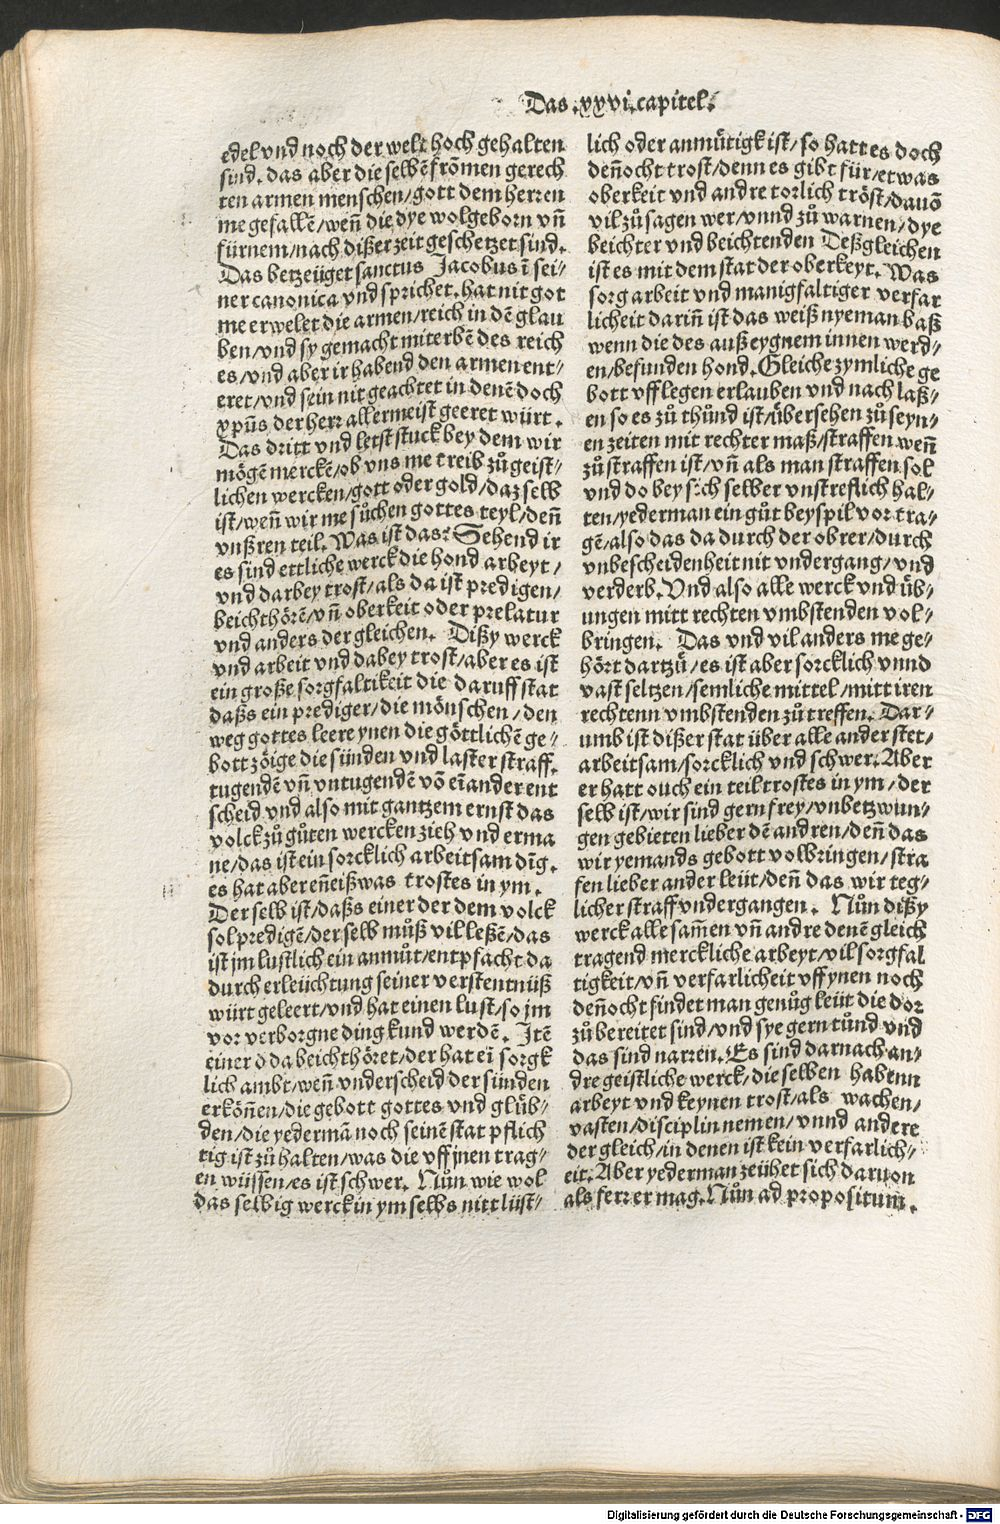 Das .xxvi. capitel.
edel vnd noch der welt hoch gehalten
sind. das aber die selbē frōmen gerech
ten armen menschen/gott dem herren
me gefallē/weñ die dye wolgeborn vñ
fürnem/nach dißer zeit geschetzet sind.
Das betzeüget sanctus Jacobus ī sei-
ner canonica vnd sprichet. hat nit got
me erwelet die armen/reich in dē glau
ben/vnd sy gemacht miterbē des reich
es/vnd aber ir habend den armen ent-
eret/vnd sein nit geachtet in denē doch
xp̄us der herr allermeist geeret würt.
Das dritt vnd letst stuck bey dem wir
mögē merckē/ob vns me treib zů geist-
lichen wercken/gott oder gold/daz selb
ist/weñ wir me sůchen gottes teyl/deñ
vnßren teil. Was ist das? Sehend ir
es sind ettliche werck die hond arbeyt/
vnd darbey trost/als da ist predigen/
beichthörē/vñ oberkeit oder prelatur
vnd anders der gleichen. Dißy werck
vnd arbeit vnd dabey trost/aber es ist
ein große sorgfaltikeit die daruff stat
daßs ein prediger/die mönschen/den
weg gottes leere ynen die göttlichē ge-
bott zöige die sünden vnd laster straff.
tugendē vñ vntugendē vō eīander ent
scheid vnd also mit gantzem ernst das
volck zů gůten wercken zieh vnd erma
ne/das ist ein sorcklich arbeitsam dīg.
es hat aber eñeißwas trostes in ym.
Der selb ist/daßs einer der dem volck
sol predigē/der selb můß vil leßē/das
ist jm lustlich ein anmůt/entpfacht da
durch erleüchtung seiner verstentnüß
würt geleert/vnd hat einen lust/so jm
vor verborgne ding kund werdē. Jtē
einer d̄ da beichthöret/der hat eī sorgk
lich ambt/weñ vnderscheid der sünden
erköñen/die gebott gottes vnd glüb-
den/die yedermā noch seinē stat pflich
tig ist zů halten/was die vff jnen trag-
en wüssen/es ist schwer. Nůn wie wol
das selbig werck in ym selbs nitt lüst-
lich oder anmütigk ist/so hatt es doch
deñocht trost/denn es gibt für/etwas
oberkeit vnd andre torlich tröst/dauō
vil zů sagen wer/vnnd zů warnen/dye
beichter vnd beichtenden Deßgleichen
ist es mit dem stat der oberkeyt. Was
sorg arbeit vnd manigfaltiger verfar
licheit dariñ ist das weiß nyeman baß
wenn die des auß eygnem innen werd-
en/befunden hond. Gleiche zymliche ge
bott vff legen erlauben vnd nach laß-
en so es zů thůnd ist/übersehen zů seyn-
en zeiten mit rechter maß/straffen weñ
zů straffen ist/vñ als man straffen sol
vnd do bey sich selber vnstreflich hal-
ten/yederman ein gůt beyspil vor tra-
gē/also das da durch der obrer/durch
vnbescheidenheit nit vndergang/vnd
verderb. Vnd also alle werck vnd üb-
ungen mitt rechten vmbstenden vol-
bringen. Das vnd vil anders me ge-
hört dartzů/es ist aber sorcklich vnnd
vast seltzen/semliche mittel/mitt iren
rechtenn vmbstenden zů treffen. Dar-
umb ist dißer stat über alle ander stet-
arbeitsam/sorcklich vnd schwer. Aber
er hatt ouch ein teil trostes in ym/der
selb ist/wir sind gern frey/vnbetzwun-
gen gebieten lieber dē andren/deñ das
wir yemands gebott volbringen/stra
fen lieber ander leüt/deñ das wir teg-
licher straff vndergangen. Nůn dißy
werck alle sam̄en vñ andre denē gleich
tragend merckliche arbeyt/vil sorgfal
tigkeit/vñ verfarlicheit vff ynen noch
deñocht findet man genůg leüt die dor
zů bereitet sind/vnd sye gern tůnd vnd
das sind narren. Es sind darnach an-
dre geistliche werck/die selben habenn
arbeyt vnd keynen trost/als wachen/
vasten/disciplin nemen/vnnd andere
der gleich/in denen ist kein verfarlich-
eit. Aber yederman zeühet sich daruon
als ferr er mag. Nůn ad propositum.
Digitalisierung gefördert durch die Deutsche Forschungsgemeinschaft - DFG